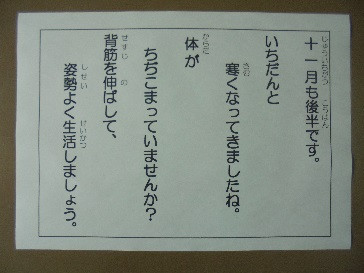 十一月も後半です。
いちだんと
寒くなってきましたね。
体が
ちぢこまっていませんか？
背筋を伸ばして、
姿勢よく生活しましょう。